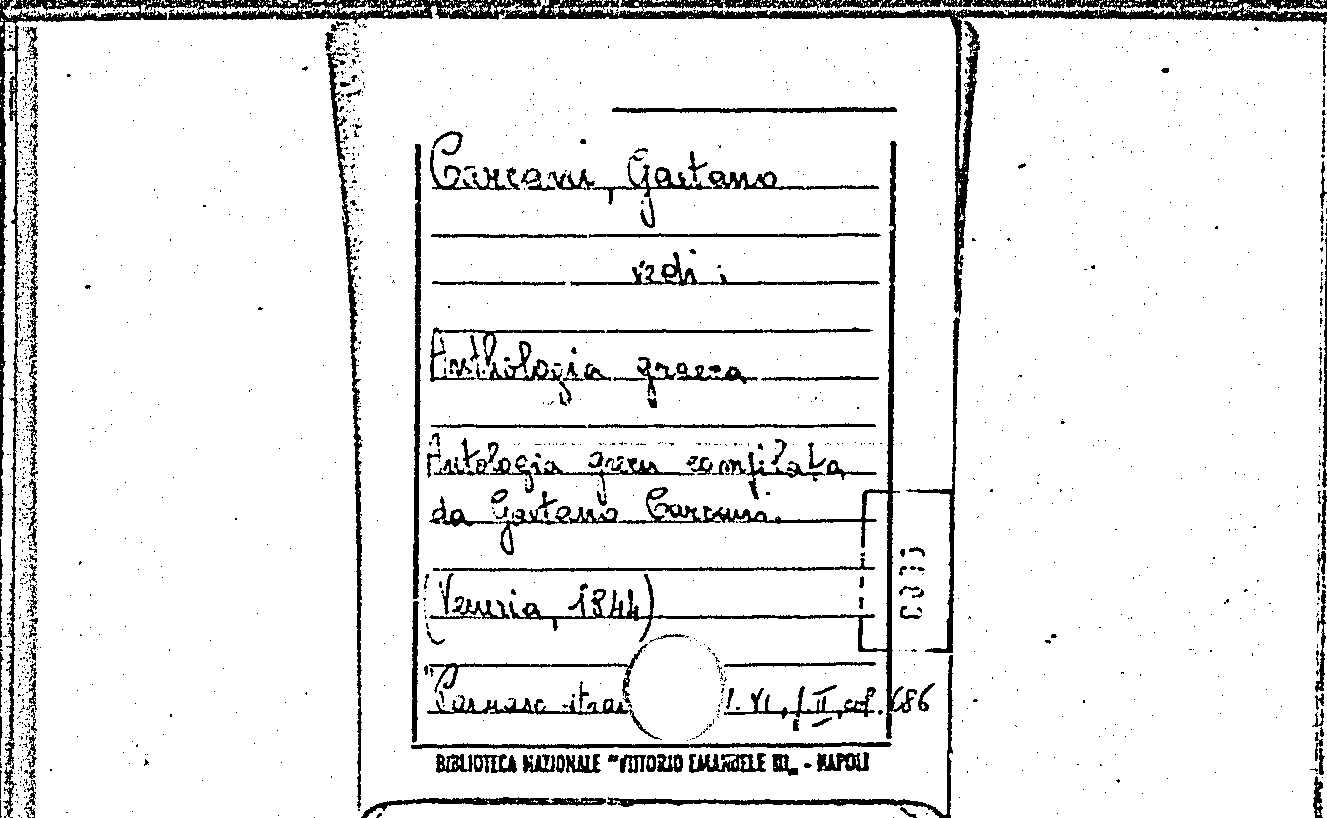 Carcani, Gaetano
vedi:
Anthologia graeca
Antologia greca compilata
da Gaetano Carcani.
(Venezia, 1844)
"Parnaso stra V. VI, p. II, col. 686
BIBLIOTECA NAZIONALE "VITTORIO EMANUELE III„ - NAPOLI